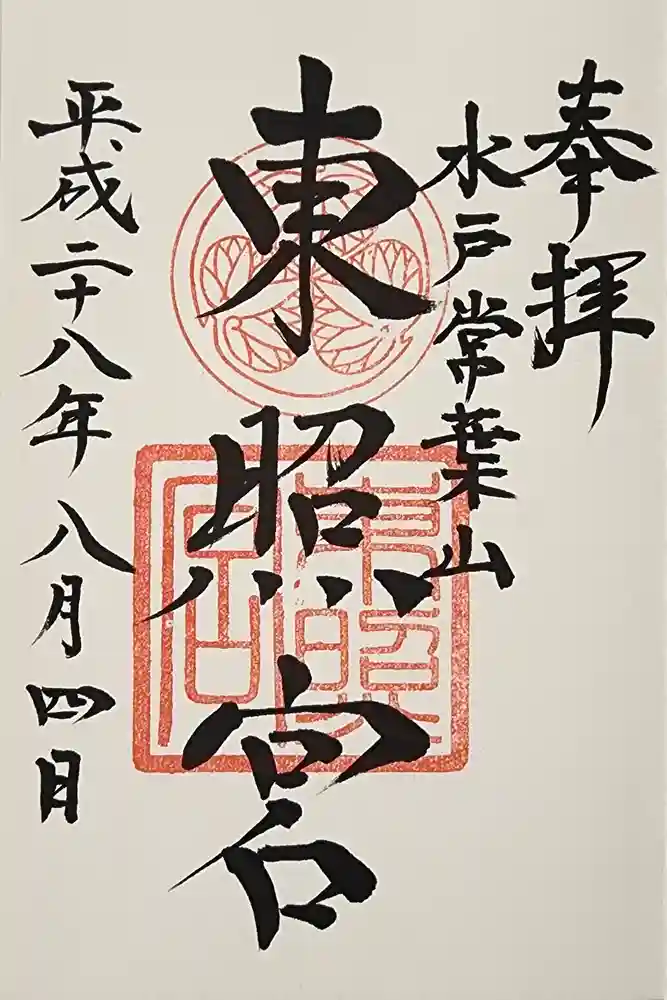 奉拝
水戸常葉山
東照宮
平成二十八年八月四日